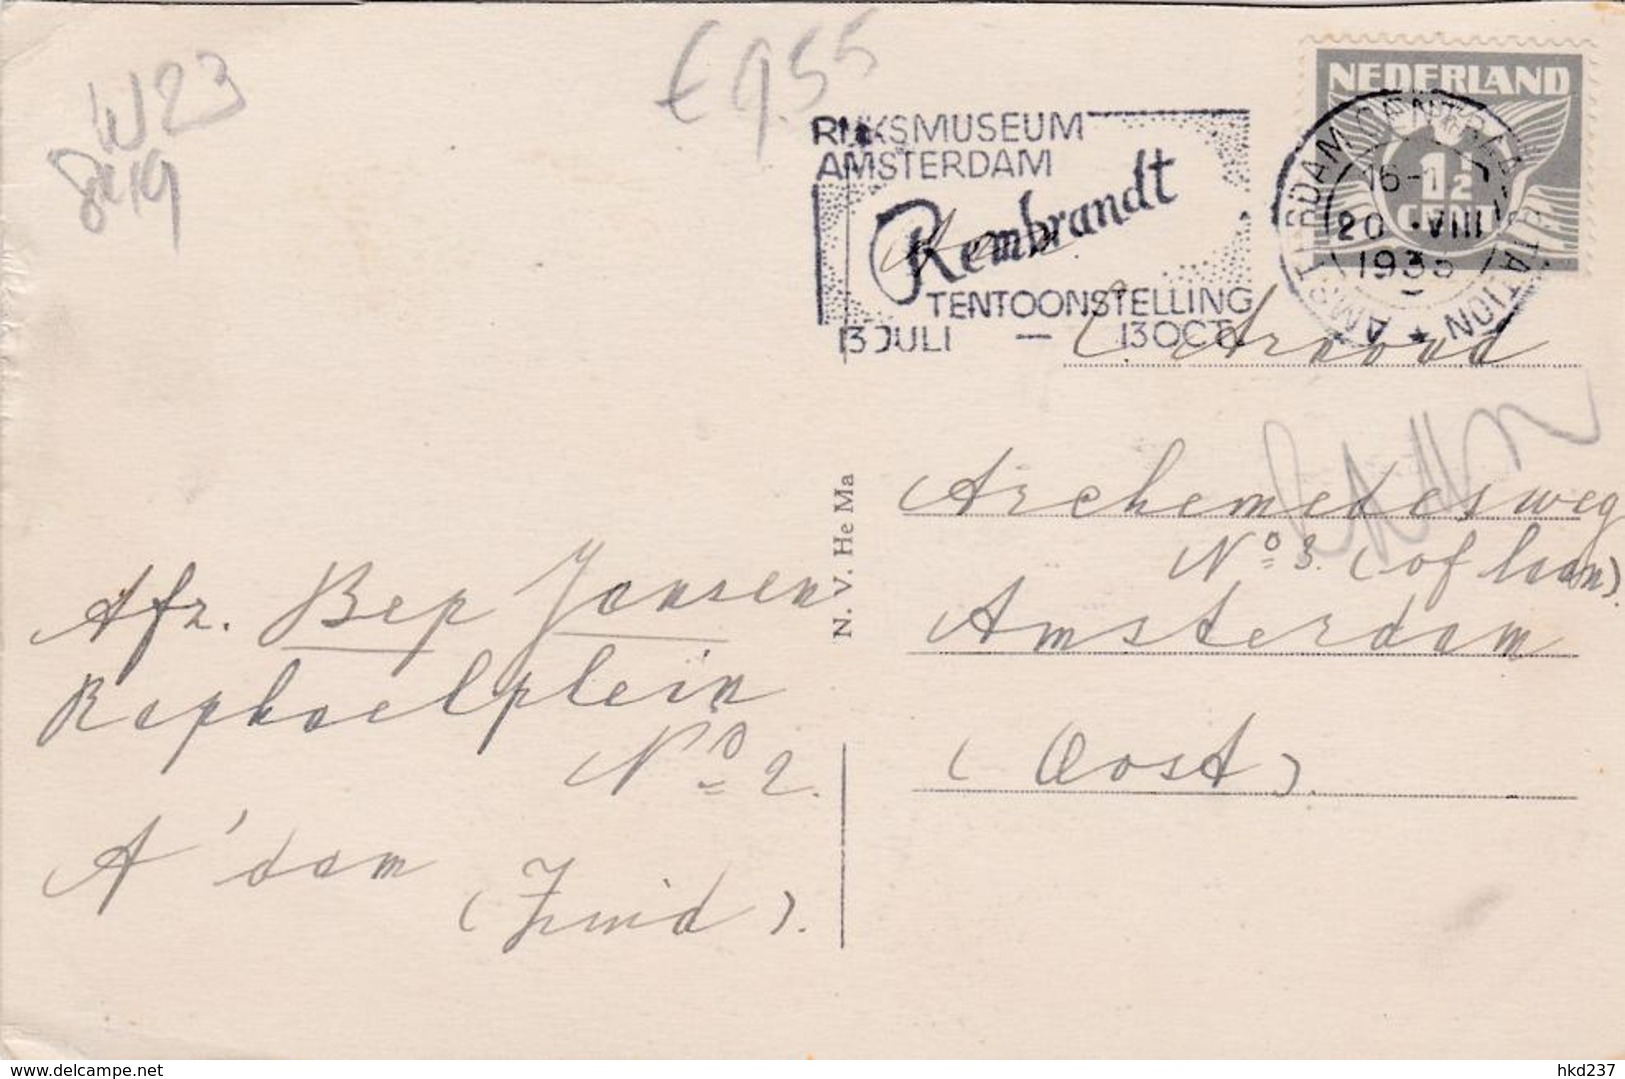 W23
8419
€ 9.55
RIJKSMUSEUM
AMSTERDAM
Rembrandt
TENTOONSTELLING
13 JULI — 13 OCT.
NEDERLAND
1½
CENT
AMSTERDAM CENTRAAL STATION
20 VIII
1935
C. Arnoud
Archemedesweg
Nº 3. (of laan).
Amsterdam
(Oost).
N. V. He Ma
Afz. Bep Jansen
Raphaelplein
Nº 2.
A'dam
(Zuid).
www.delcampe.net
hkd237